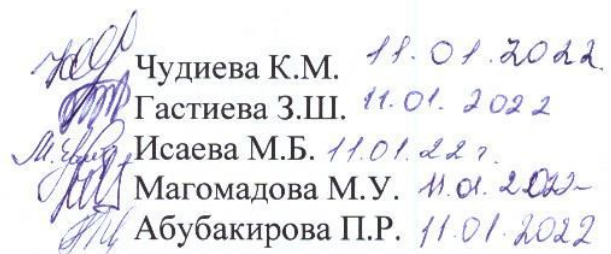 Чудиева К.М. 11.01.2022.
Гастиева З.Ш. 11.01.2022
Исаева М.Б. 11.01.22г.
Магомадова М.У. 11.01.2022
Абубакирова П.Р. 11.01.2022